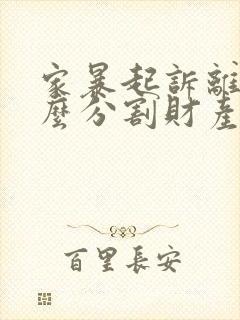 家暴起訴離
麼分割財產
百里長安